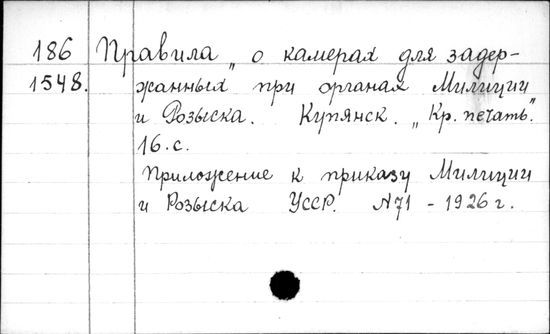 186 Правила „ о камерах для задер-
1548. жанных при органах Милиции
и Розыска. Купянск. „Кр. печать“.
16. с.
Приложение к приказу Милиции
и Розыска УССР. №71 - 1926 г.